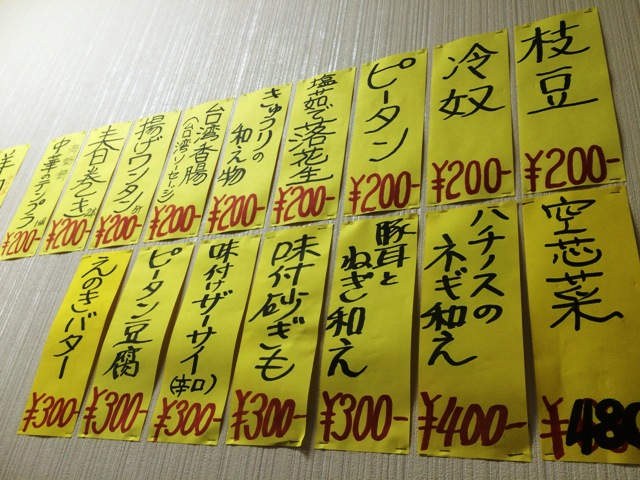 枝豆
¥200-
冷奴
¥200-
ピータン
¥200-
塩茹で落花生
¥200-
きゅうりの
和え物
¥200-
台湾香腸
(台湾ソーセージ)
¥200-
揚げワンタン
¥200-
春巻き
¥200-
中華のテンプラ
¥200-
空芯菜
480
ハチノスの
ネギ和え
¥400-
豚耳と
ねぎ和え
¥300-
味付砂ぎも
¥300-
味付けザーサイ
(辛口)
¥300-
ピータン豆腐
¥300-
えのきバター
¥300-